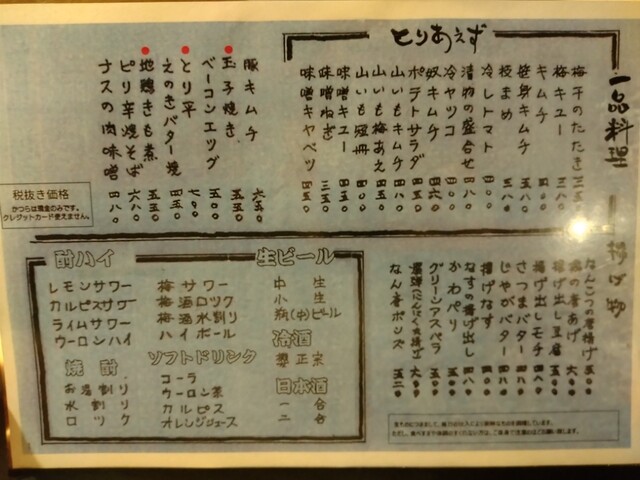 一品料理
とりあえず
梅干のたたき 三五〇
梅キユー 三八〇
キムチ 四〇〇
笹身キムチ 五八〇
枝まめ 三八〇
冷しトマト 四〇〇
漬物の盛合せ 四八〇
冷ヤツコ 四〇〇
奴キムチ 四六〇
ポテトサラダ 四五〇
山いもキムチ 五八〇
山いも梅あえ 五五〇
山いも短冊 四五〇
味噌キユー 四五〇
味噌ねぎ 三五〇
味噌キャベツ 四五〇
豚キムチ 六五〇
玉子焼き 五五〇
ベーコンエッグ 五〇〇
とり平 七〇〇
えのきバター焼 四五〇
地鶏きも煮 五五〇
ピリ辛焼そば 六八〇
ナスの肉味噌 四八〇
税抜き価格
かつらは現金のみです。
クレジットカード使えません。
揚げ物
なんこつの唐揚げ 五〇〇
の唐あげ 六〇〇
揚げ出し豆腐 五〇〇
揚げ出しモチ 四八〇
さつまバター 四八〇
じゃがバター 四八〇
揚げなす 四〇〇
なすの揚げ出し 四八〇
かわパリ 四〇〇
グリーンアスパラ 五〇〇
なん唐ポンズ 五二〇
生ビール
中 生
小 生
瓶(中)ビール
冷酒
櫻正宗
日本酒
一 合
二 合
酎ハイ
レモンサワー
カルピスサワー
ライムサワー
ウーロンハイ
梅サワー
梅酒ロック
梅酒水割り
ハイボール
焼 酎
お湯割り
水 割 り
ロ ッ ク
ソフトドリンク
コーラ
ウーロン茶
カルピス
オレンジジュース